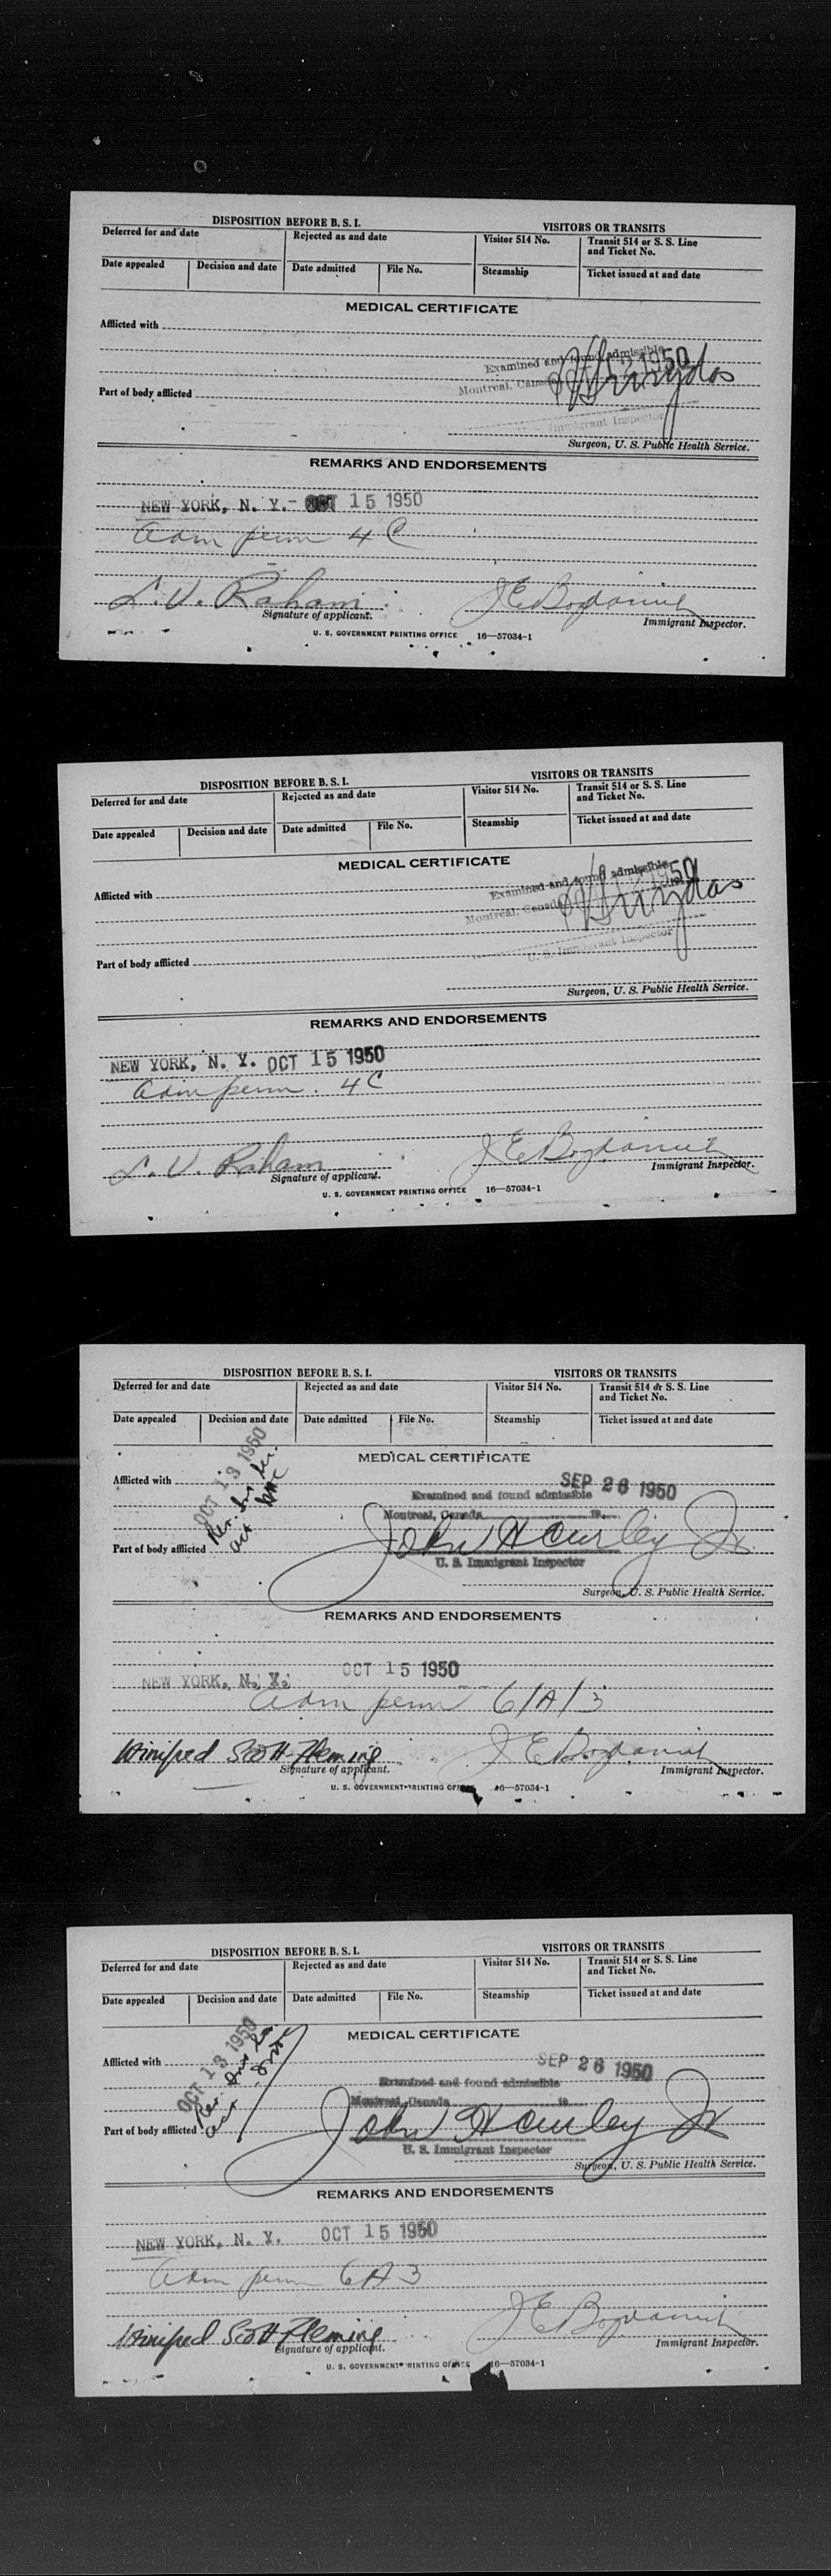 DISPOSITION BEFORE B. S. I.
VISITORS OR TRANSITS
Deferred for and date
Rejected as and date
Visitor 514 No.
Transit 514 or S. S. Line and Ticket No.
Date appealed
Decision and date
Date admitted
File No.
Steamship
Ticket issued at and date
MEDICAL CERTIFICATE
Afflicted with
Examined and found admissible
Montreal, Canada 1950
Part of body afflicted
U. S. Immigrant Inspector
Surgeon, U. S. Public Health Service.
REMARKS AND ENDORSEMENTS
NEW YORK, N. Y. - OCT 15 1950
adm perm 4 C
L. V. Raham
Signature of applicant.
Immigrant Inspector.
U. S. GOVERNMENT PRINTING OFFICE 16—57034-1
DISPOSITION BEFORE B. S. I.
VISITORS OR TRANSITS
Deferred for and date
Rejected as and date
Visitor 514 No.
Transit 514 or S. S. Line and Ticket No.
Date appealed
Decision and date
Date admitted
File No.
Steamship
Ticket issued at and date
MEDICAL CERTIFICATE
Afflicted with
Examined and found admissible
Montreal, Canada 1950
U. S. Immigrant Inspector
Part of body afflicted
Surgeon, U. S. Public Health Service.
REMARKS AND ENDORSEMENTS
NEW YORK, N. Y. OCT 15 1950
adm perm. 4 C
L. V. Raham
Signature of applicant.
Immigrant Inspector.
U. S. GOVERNMENT PRINTING OFFICE 16—57034-1
DISPOSITION BEFORE B. S. I.
VISITORS OR TRANSITS
Deferred for and date
Rejected as and date
Visitor 514 No.
Transit 514 or S. S. Line and Ticket No.
Date appealed
Decision and date
Date admitted
File No.
Steamship
Ticket issued at and date
OCT 13 1950
MEDICAL CERTIFICATE
Afflicted with
SEP 26 1950
Examined and found admissible
Montreal, Canada 19
John H Curley Jr
Part of body afflicted
U. S. Immigrant Inspector
Surgeon, U. S. Public Health Service.
REMARKS AND ENDORSEMENTS
NEW YORK, N. Y. OCT 15 1950
adm perm 6/A/3
Winifred Scott Fleming
Signature of applicant.
Immigrant Inspector.
U. S. GOVERNMENT PRINTING OFFICE 16—57034-1
DISPOSITION BEFORE B. S. I.
VISITORS OR TRANSITS
Deferred for and date
Rejected as and date
Visitor 514 No.
Transit 514 or S. S. Line and Ticket No.
Date appealed
Decision and date
Date admitted
File No.
Steamship
Ticket issued at and date
OCT 13 1950
MEDICAL CERTIFICATE
Afflicted with
SEP 26 1950
Examined and found admissible
Montreal, Canada 19
John H Curley Jr
Part of body afflicted
U. S. Immigrant Inspector
Surgeon, U. S. Public Health Service.
REMARKS AND ENDORSEMENTS
NEW YORK, N. Y. OCT 15 1950
adm perm 6A3
Winifred Scott Fleming
Signature of applicant.
Immigrant Inspector.
U. S. GOVERNMENT PRINTING OFFICE 16—57034-1